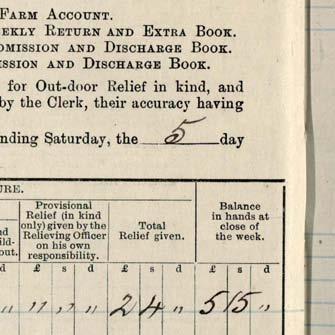 FARM ACCOUNT.
EEKLY RETURN AND EXTRA BOOK.
DMISSION AND DISCHARGE BOOK.
ISSION AND DISCHARGE BOOK.
for Out-door Relief in kind, and
by the Clerk, their accuracy having
nding Saturday, the 5 day
URE.
nd
ild-
out.
Provisional
Relief (in kind
only) given by the
Relieving Officer
on his own
responsibility.
Total
Relief given.
Balance
in hands at
close of
the week.
d £ s d £ s d £ s d
" " " " 2 4 " 5 15 "